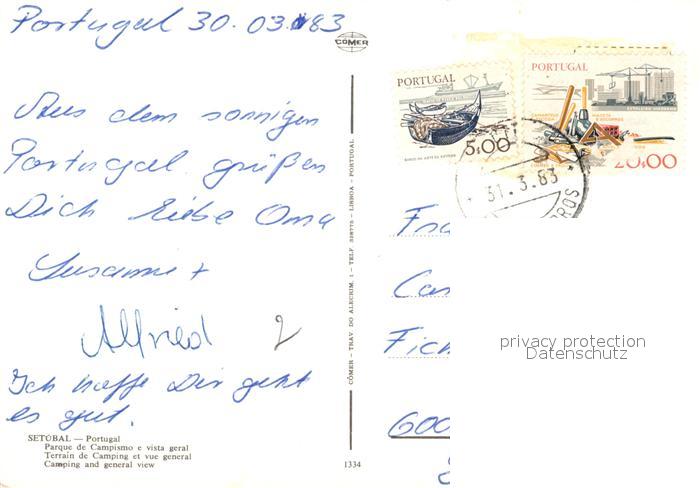 Portugal 30.03.83
CÓMER
Aus dem sonnigen
Portugal grüßen
Dich liebe Oma
Susanne +
Alfried 2
Ich hoffe Dir geht
es gut.
SETÚBAL — Portugal
Parque de Campismo e vista geral
Terrain de Camping et vue general
Camping and general view
1334
CÓMER — TRAV. DO ALECRIM, 1 — TELF. 328775 — LISBOA — PORTUGAL
PORTUGAL
5.00
PORTUGAL
20.00
31.3.83
Fra
Cas
Fich
600
privacy protection
Datenschutz